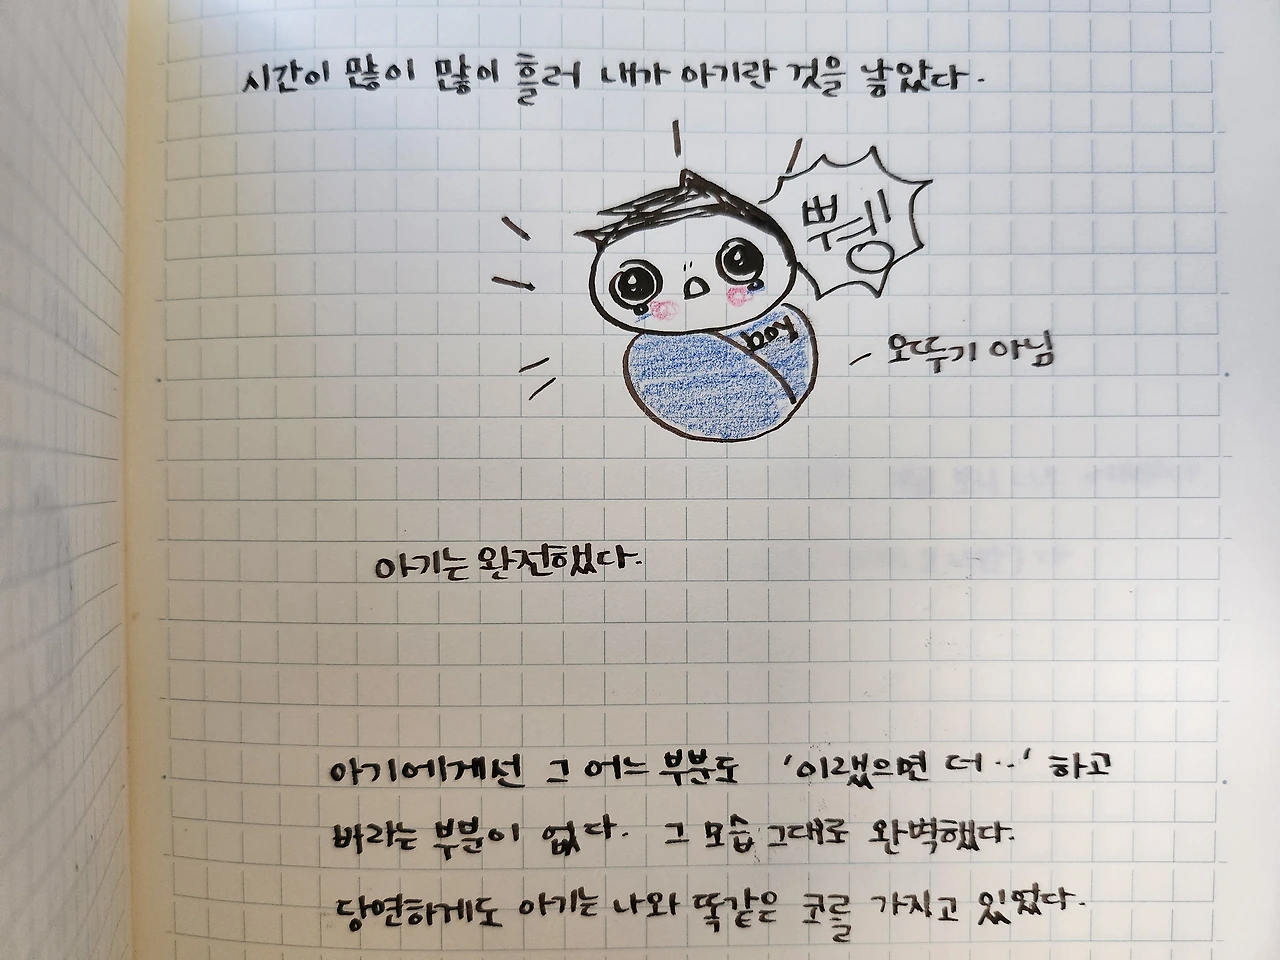 시간이 많이 많이 흘러 내가 아기란 것을 낳았다.
뿌듕
boy
오뚜기 아님
아기는 완전했다.
아기에게선 그 어느 부분도 '이랬으면 더..' 하고
바라는 부분이 없다. 그 모습 그대로 완벽했다.
당연하게도 아기는 나와 똑같은 코를 가지고 있었다.